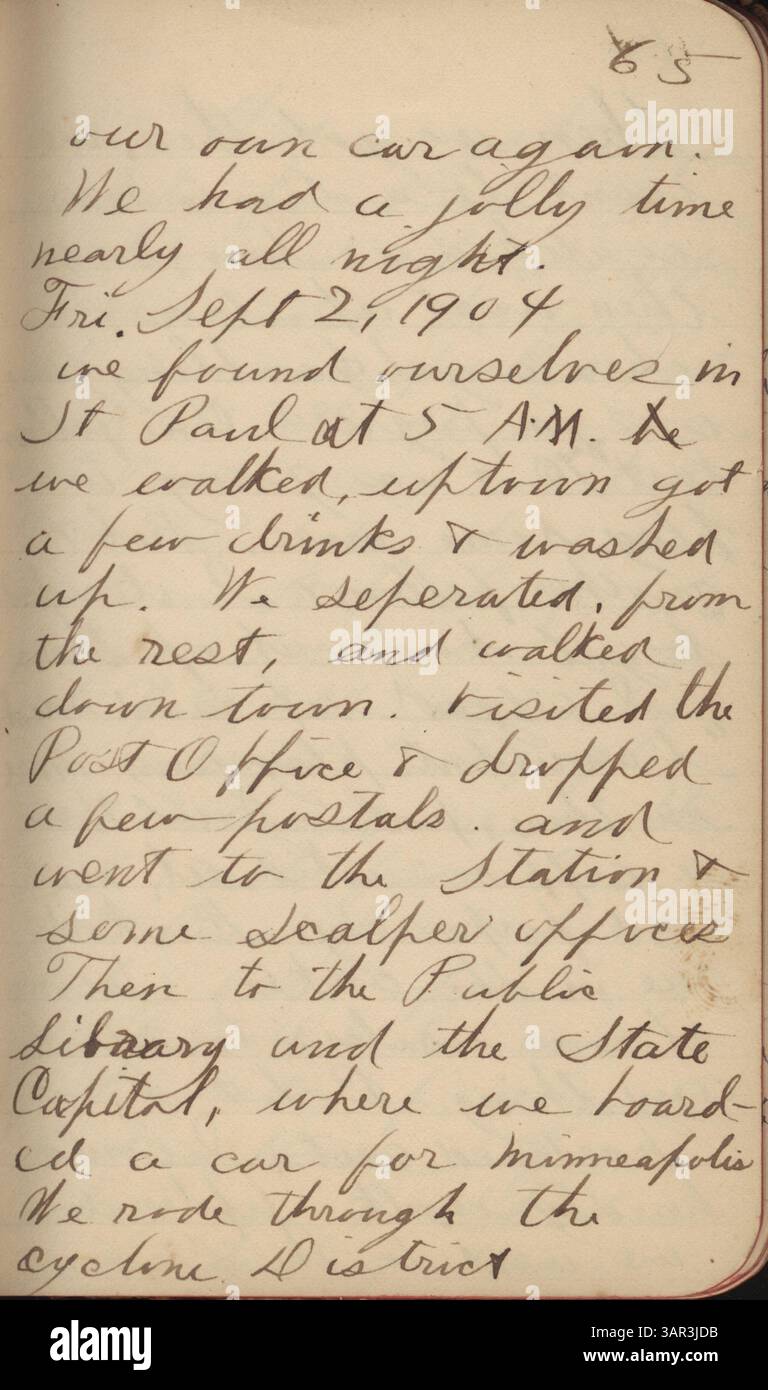 65
our own car again.
We had a jolly time
nearly all night.
Fri. Sept 2, 1904
we found ourselves in
St Paul at 5 A.M. 
we walked, uptown got
a few drinks & washed
up. We seperated, from
the rest, and walked
down town. Visited the
Post Office & dropped
a few postals. and
went to the Station &
some scalper offices
Then to the Public
Library and the State
Capital, where we board-
ed a car for Minneapolis
We rode through the
cyclone District
alamy
alamy
Image ID: 3AR3JDB
www.alamy.com